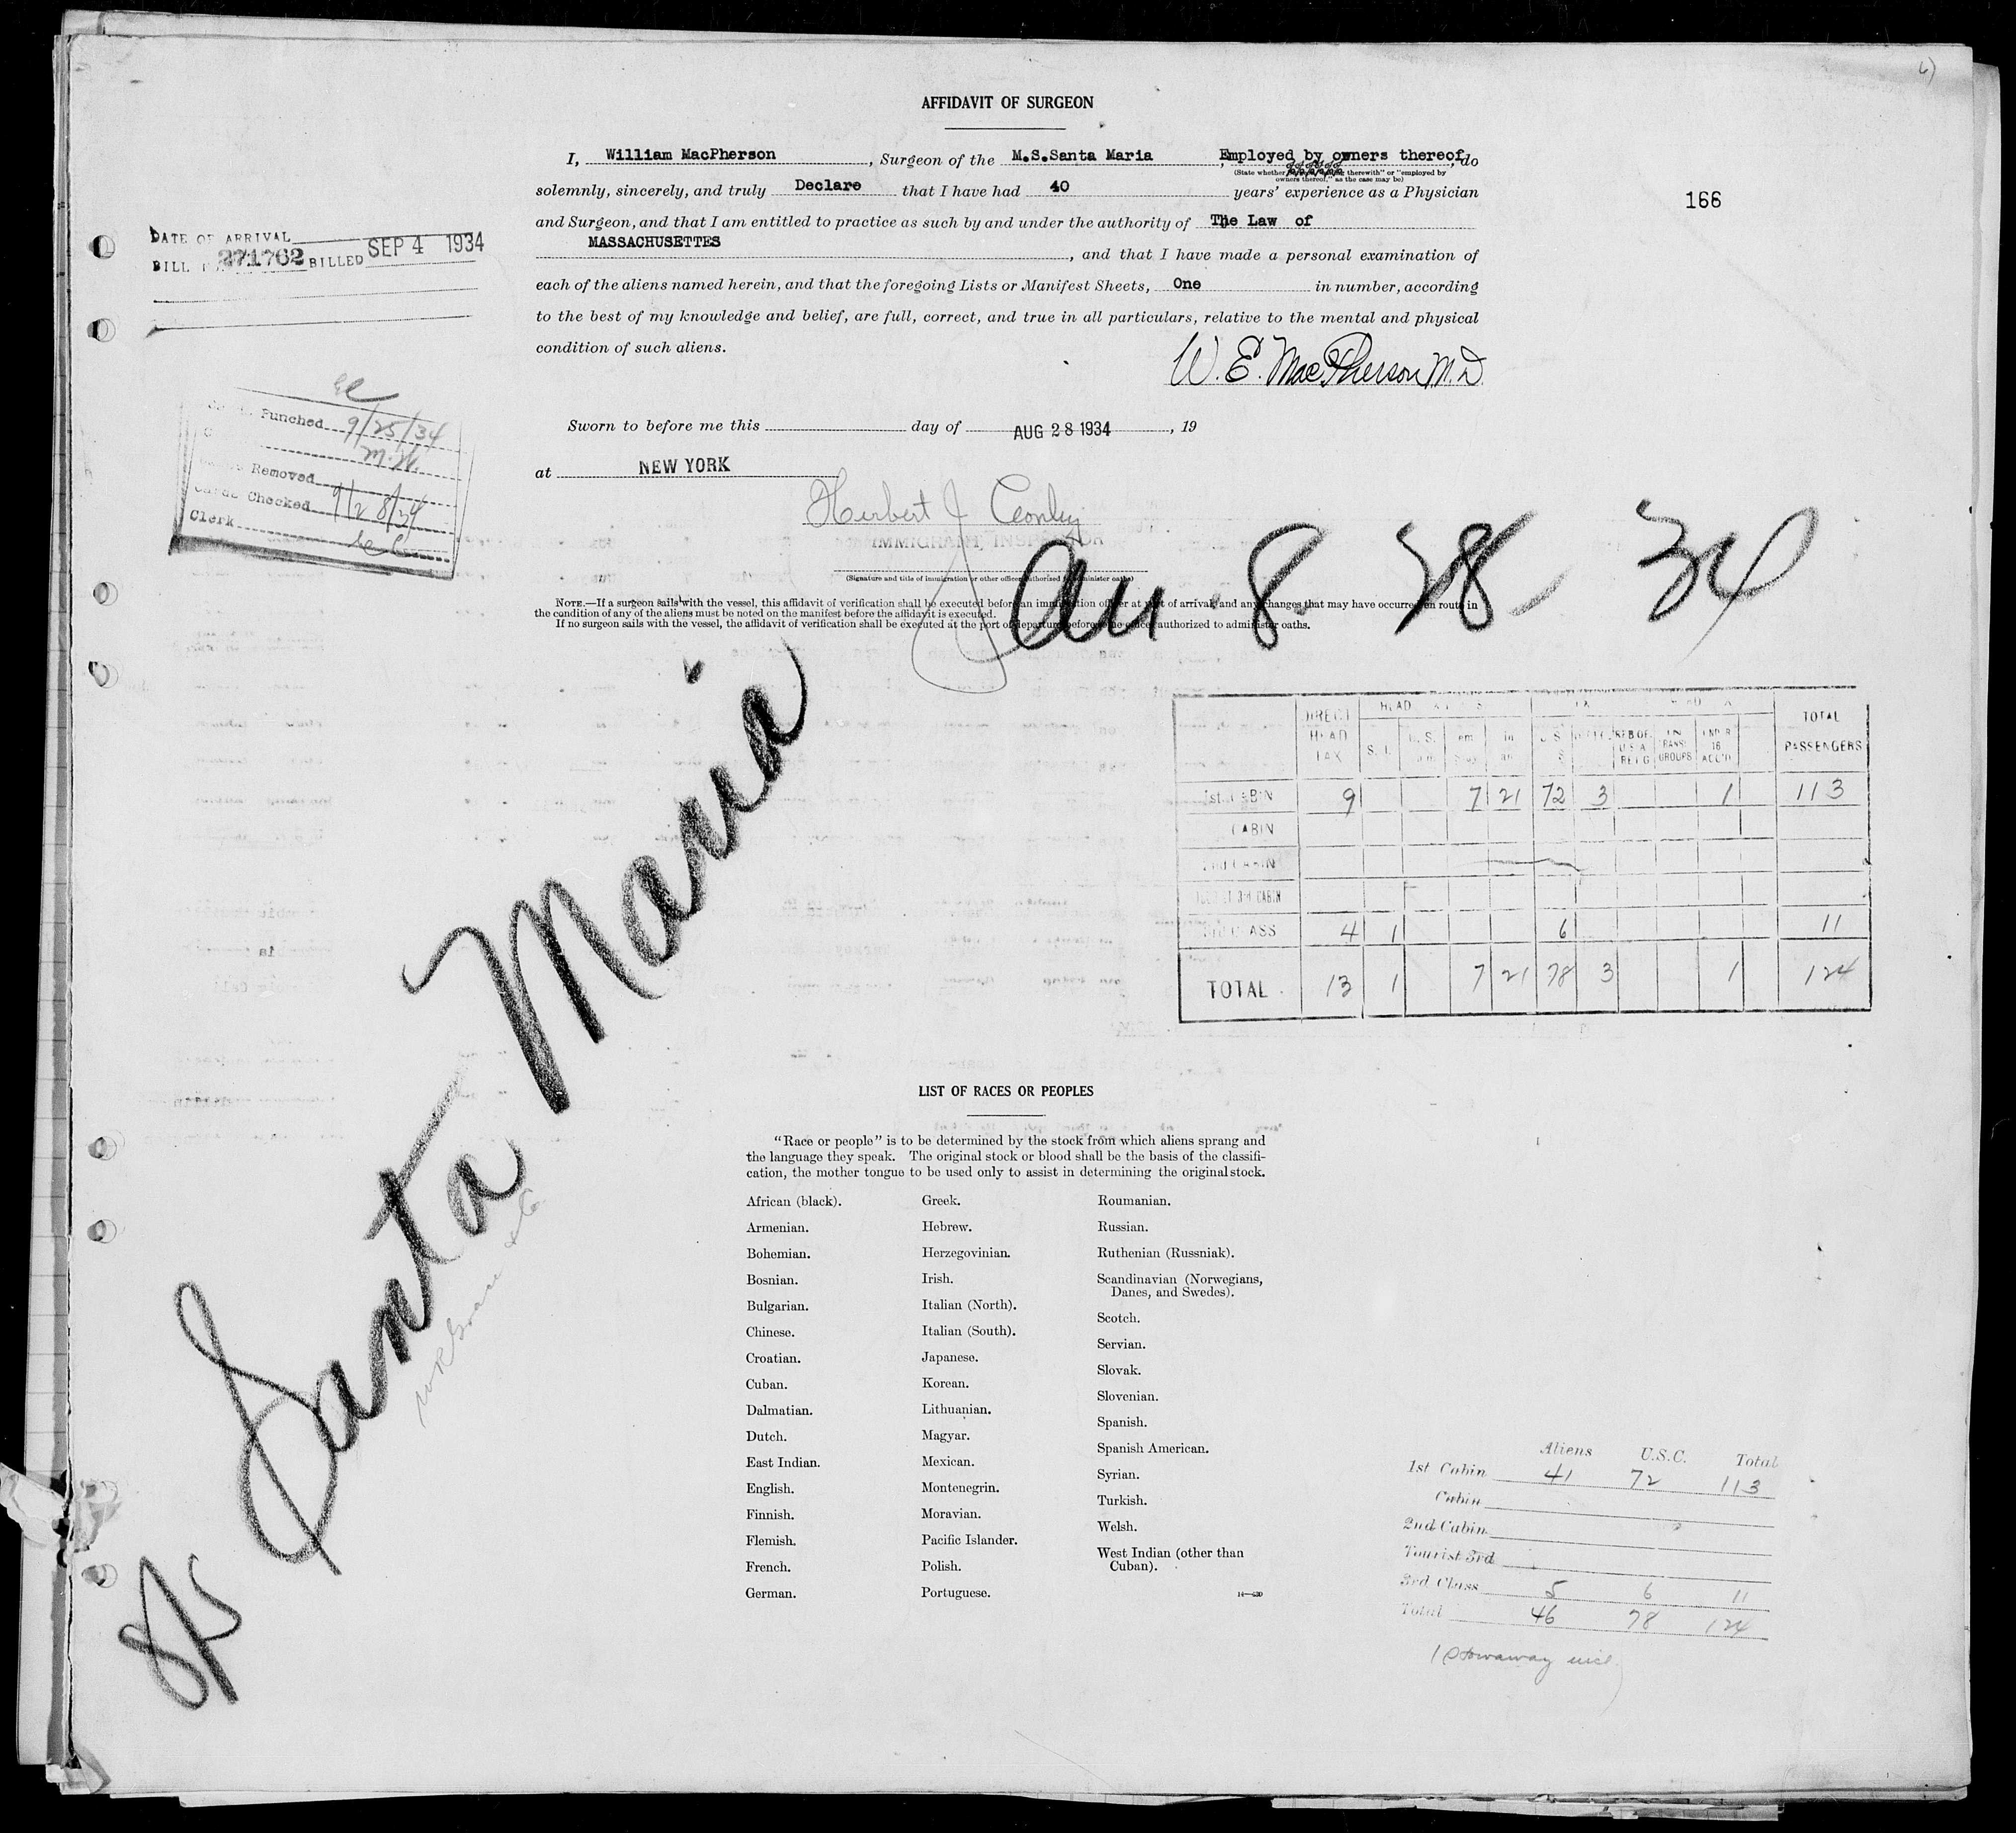 AFFIDAVIT OF SURGEON
I, William MacPherson, Surgeon of the M.S.Santa Maria, Employed by owners thereof, do
(State whether therewith" or "employed by
owners thereof," as the case may be)
solemnly, sincerely, and truly Declare that I have had 40 years' experience as a Physician
166
and Surgeon, and that I am entitled to practice as such by and under the authority of The Law of
MASSACHUSETTES, and that I have made a personal examination of
each of the aliens named herein, and that the foregoing Lists or Manifest Sheets, One in number, according
to the best of my knowledge and belief, are full, correct, and true in all particulars, relative to the mental and physical
condition of such aliens.
W. E. MacPherson M.D.
DATE OF ARRIVAL
BILL 271762 BILLED SEP 4 1934
Punched 9/25/34
M.W.
Removed
Cards Checked 9/28/34
Clerk
Sworn to before me this day of AUG 28 1934, 19
at NEW YORK
Herbert J
IMMIGRANT INSPECTOR
(Signature and title of immigration or other officer authorized to administer oaths)
8 28 34
NOTE.—If a surgeon sails with the vessel, this affidavit of verification shall be executed before an immigration officer at port of arrival, and any changes that may have occurred en route in
the condition of any of the aliens must be noted on the manifest before the affidavit is executed.
If no surgeon sails with the vessel, the affidavit of verification shall be executed at the port of departure before some officer authorized to administer oaths.
Santa Maria
DIRECT HEAD TAX
HEAD
S. I.
U. S.
IN TRANS. GROUPS
UNDER 16 ACC'D
TOTAL PASSENGERS
1st CABIN 9 7 21 72 3 1 113
CABIN
2nd CABIN
TOURIST 3rd CABIN
3rd CLASS 4 1 6 11
TOTAL 13 1 7 21 78 3 1 124
LIST OF RACES OR PEOPLES
"Race or people" is to be determined by the stock from which aliens sprang and
the language they speak. The original stock or blood shall be the basis of the classifi-
cation, the mother tongue to be used only to assist in determining the original stock.
African (black).
Armenian.
Bohemian.
Bosnian.
Bulgarian.
Chinese.
Croatian.
Cuban.
Dalmatian.
Dutch.
East Indian.
English.
Finnish.
Flemish.
French.
German.
Greek.
Hebrew.
Herzegovinian.
Irish.
Italian (North).
Italian (South).
Japanese.
Korean.
Lithuanian.
Magyar.
Mexican.
Montenegrin.
Moravian.
Pacific Islander.
Polish.
Portuguese.
Roumanian.
Russian.
Ruthenian (Russniak).
Scandinavian (Norwegians,
Danes, and Swedes).
Scotch.
Servian.
Slovak.
Slovenian.
Spanish.
Spanish American.
Syrian.
Turkish.
Welsh.
West Indian (other than
Cuban).
Aliens U.S.C. Total
1st Cabin 41 72 113
Cabin
2nd Cabin
Tourist 3rd
3rd Class 5 6 11
Total 46 78 124
1 Stowaway incl.